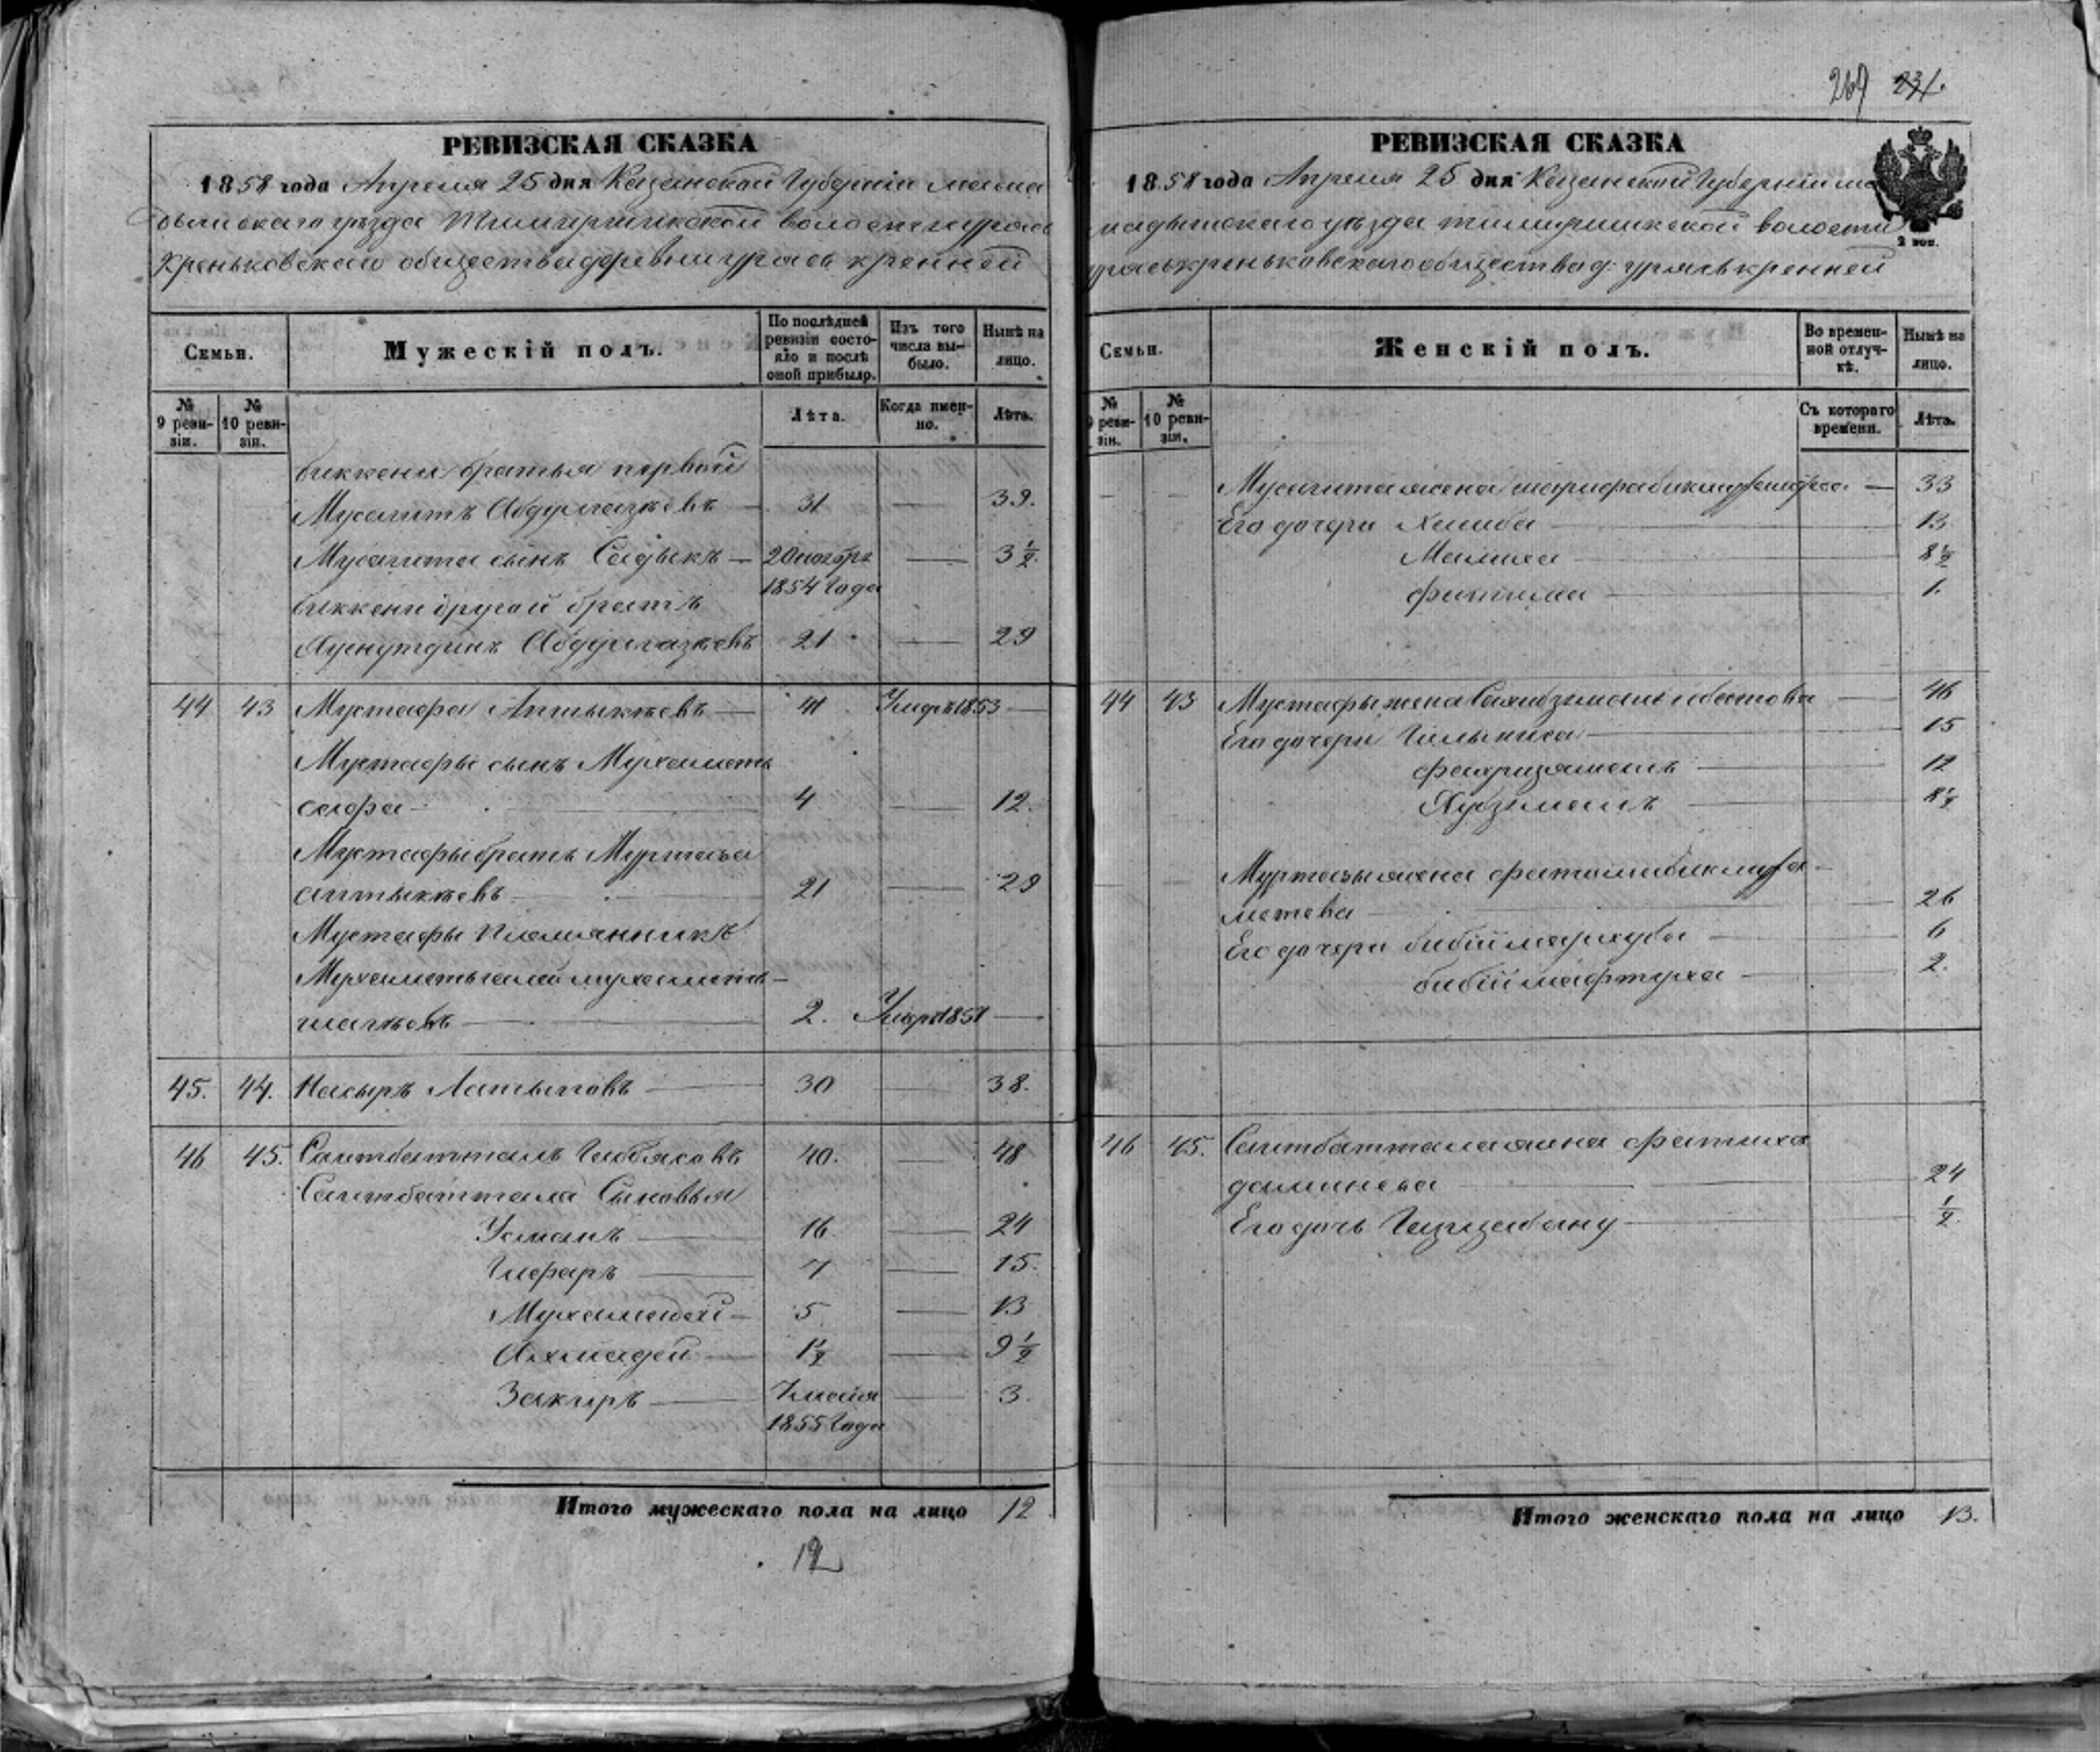 267 231.
РЕВИЗСКАЯ СКАЗКА
1858 года Апреля 25 дня Казанской Губерніи мама
дышскаго уѣзда Тимиршикской волости уряс
Креньковскаго общества деревни уряс кренней
Семьи.
Мужескій полъ.
По послѣдней ревизіи состояло и послѣ оной прибыло.
Изъ того числа выбыло.
Нынѣ на лицо.
№ 9 ревизіи.
№ 10 ревизіи.
Лѣта.
Когда именно.
Лѣта.
биккени братья первой
Мусагитъ Абдулгазѣевъ — 31 — 39.
Мусагита сынъ Садыкъ — 20 ноября — 3 1/2.
1854 Года
биккени другой братъ
Абдулгазѣевъ 21 — 29
44 43 Мустафа Аптыкѣевъ — 41 Умеръ 1853 —
Мустафы сынъ Мухаметь
сафа — 4 — 12.
Мустафы братъ Муртаза
аптыкѣевъ — 21 — 29
Мустафы племянникъ
2. Умеръ 1851 —
45. 44. Насыръ Латыповъ — 30 — 38.
46 45. Саитбатталъ Габбясовъ 40. — 48
Саитбаттала Сыновья
Усманъ — 16 — 24
Гафаръ — 7 — 15.
Мухамадей — 5 — 13
Ахмадей — 1 1/2 — 9 1/2
Закиръ — 7 мая — 3.
1855 Года
Итого мужескаго пола на лицо 12
12
РЕВИЗСКАЯ СКАЗКА
1858 года Апреля 25 дня Казанской Губерніи ма
мадышскаго уѣзда тимиршикской волости
2 коп.
уряськреньковскаго общества д. урясь кренней
Семьи.
Женскій полъ.
Во временной отлучкѣ.
Нынѣ на лицо.
№ 9 ревизіи.
№ 10 ревизіи.
Съ котораго времени.
Лѣта.
— — Мусагита жена — 33
Его дочери Хашба — 13
Малиха — 8 1/2
фатима — 1.
44 43 Мустафы жена — 46
Его дочери Гильниса — 15
фахризяманъ — 12
Хубзяманъ — 8 1/2
— — Муртазы жена
метева — 26
Его дочери бибймахуба — 6
бибймафтуха — 2.
46 45. Саитбаттала жена фатиха
даминева — 24
Его дочь Газизабану — 1/2.
Итого женскаго пола на лицо 13.